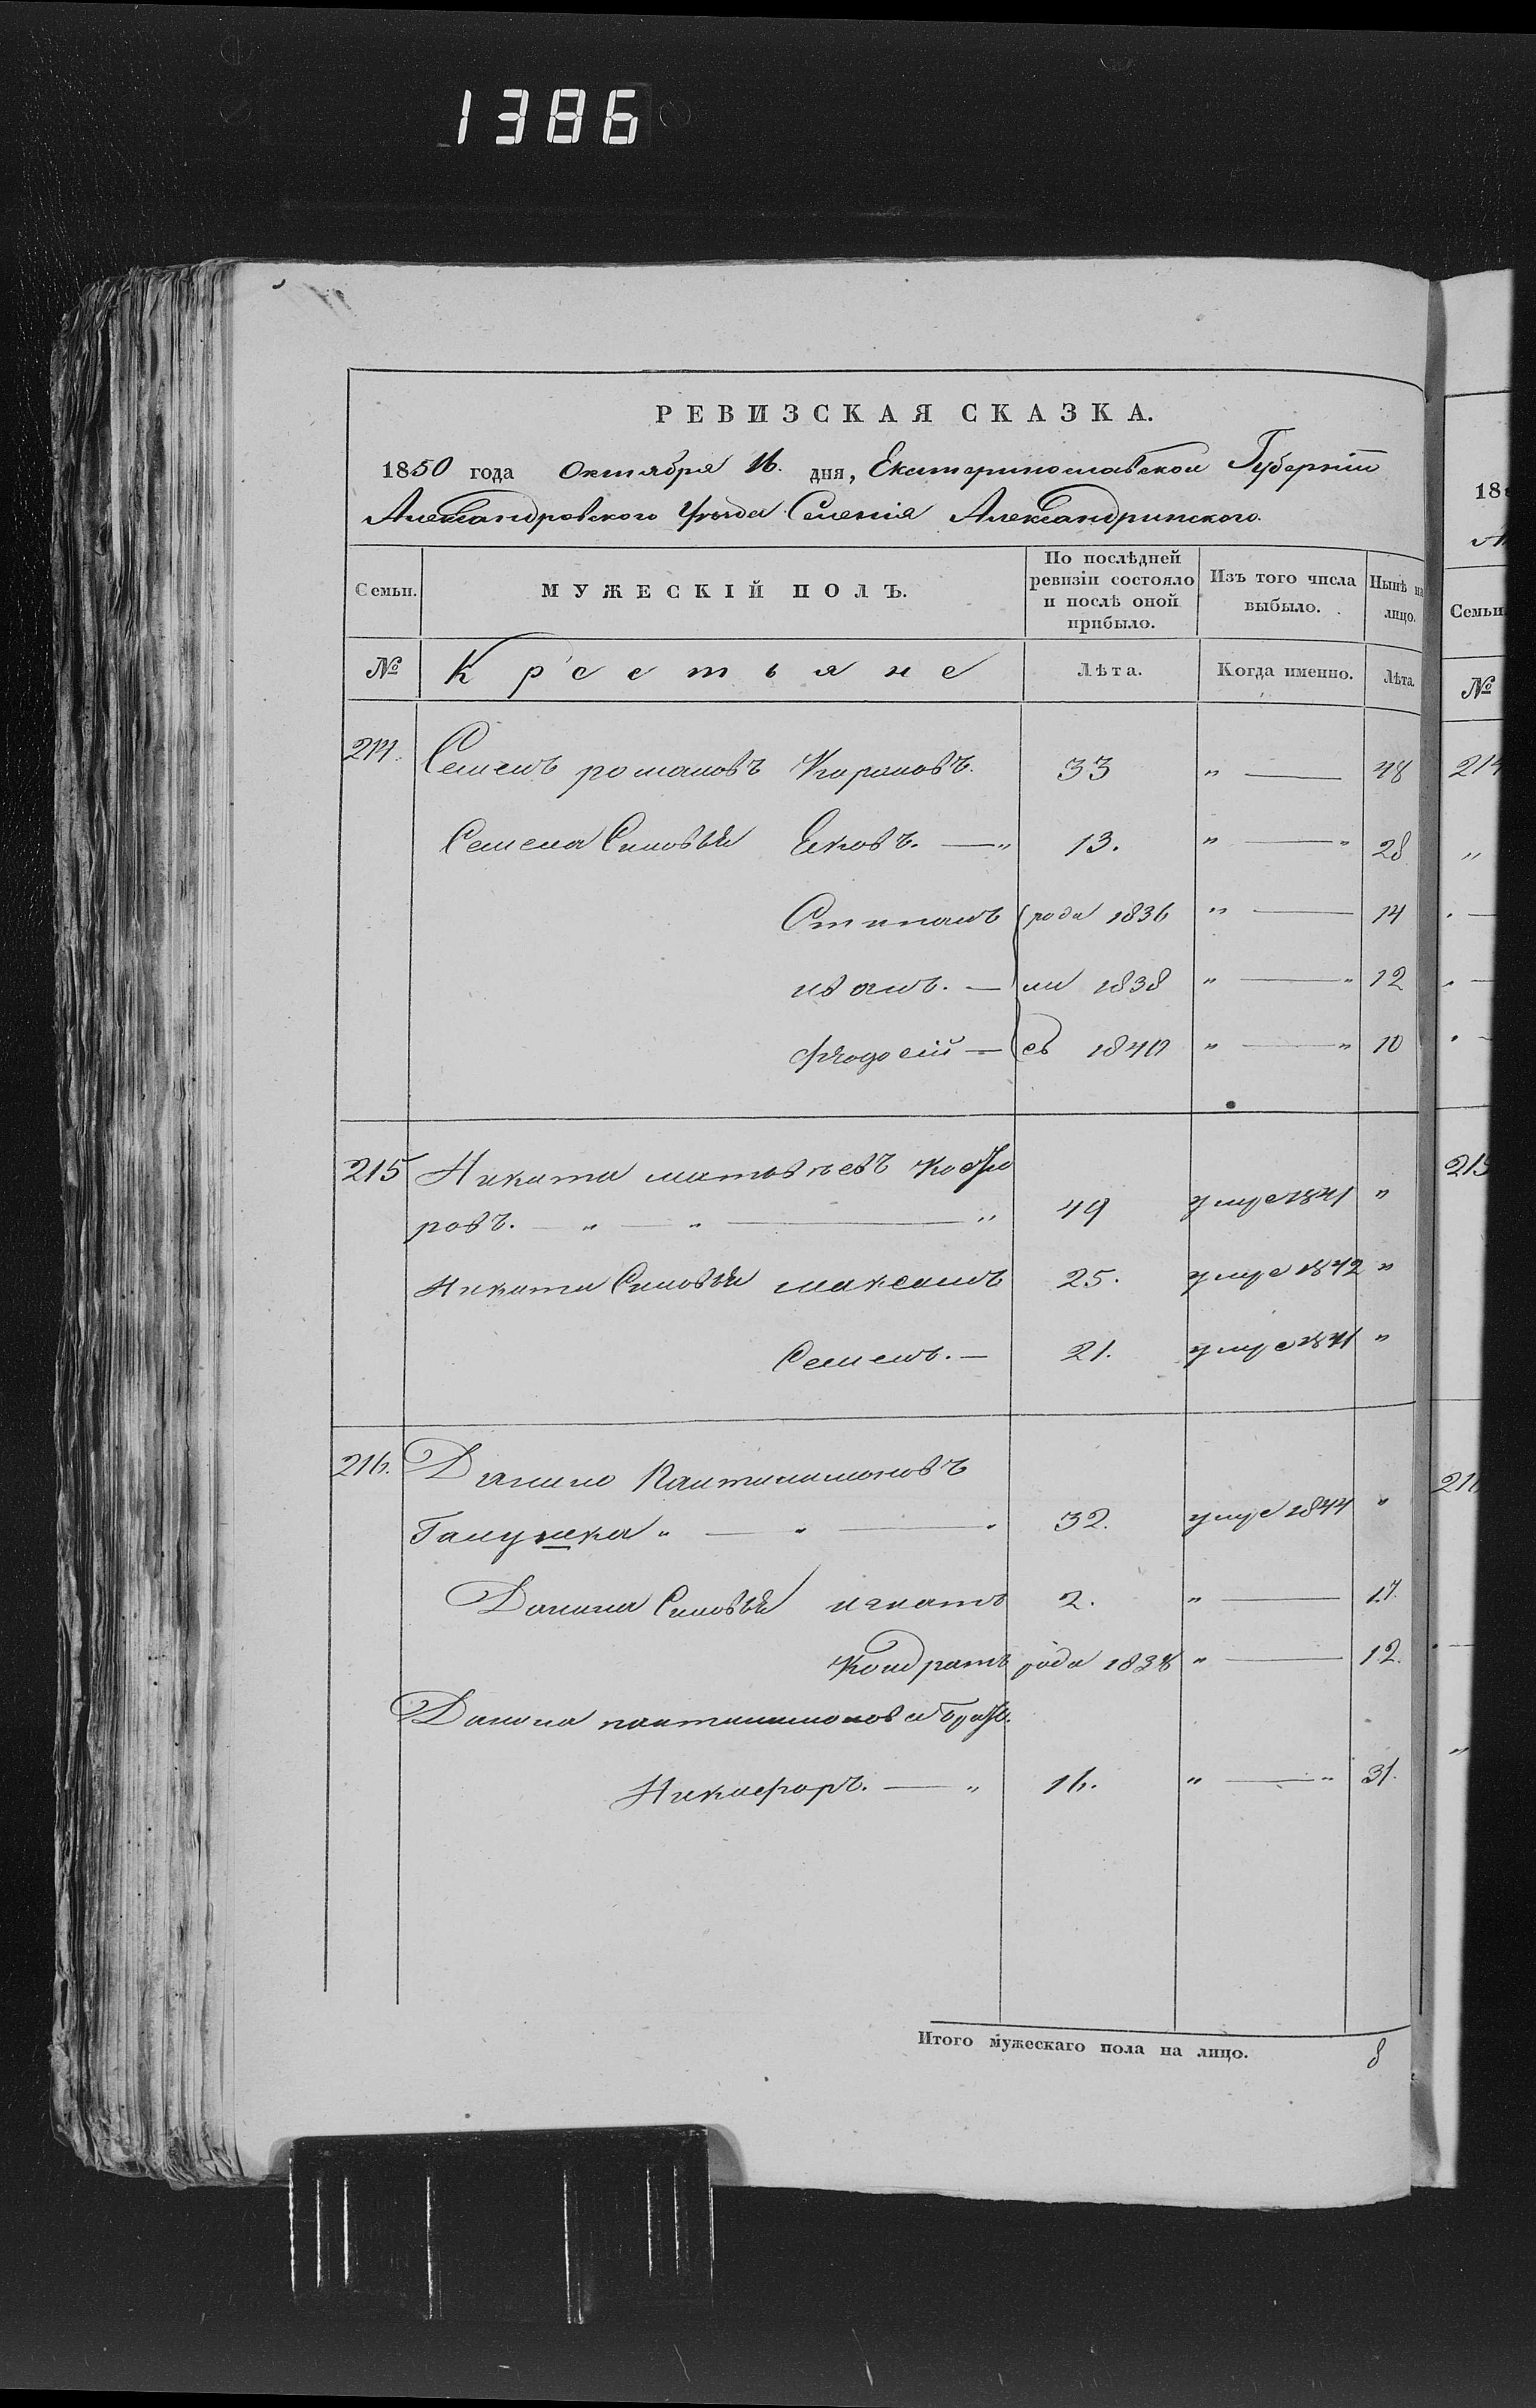 1386
РЕВИЗСКАЯ СКАЗКА.
1850 года Октября 16. дня, Екатеринославской Губерніи
Александровского Уѣзда Селенія Александринского.
Семьи. МУЖЕСКІЙ ПОЛЪ. По послѣдней ревизіи состояло и послѣ оной прибыло. Изъ того числа выбыло. Нынѣ на лицо.
№ Крестьяне Лѣта. Когда именно. Лѣта.
214. Семенъ романовъ 33 " — 48
Семена Сыновья Яковъ. — " 13. " — " 28
Степанъ роди 1836 " — 14
иванъ. — ли 1838 " — " 12
Феодосій — съ 1840 " — " 10
215 Никита матвѣевъ
ровъ. — " — " — " 49 умре 1841 "
Никиты Сыновья максимъ 25. умре 1842 "
Семенъ. — 21. умре 1841 "
216. Данило Пантилимоновъ
Галушка " — " — " 32. умре 1844 "
Данила Сыновья игнатъ 2. " — 17.
Кондратъ рода 1838 " — 12.
Данила пантилимонова братъ.
Никифоръ. — " 16. " — " 31.
Итого мужескаго пола на лицо. 8
18
Семьи
№
214
"
215
216
"